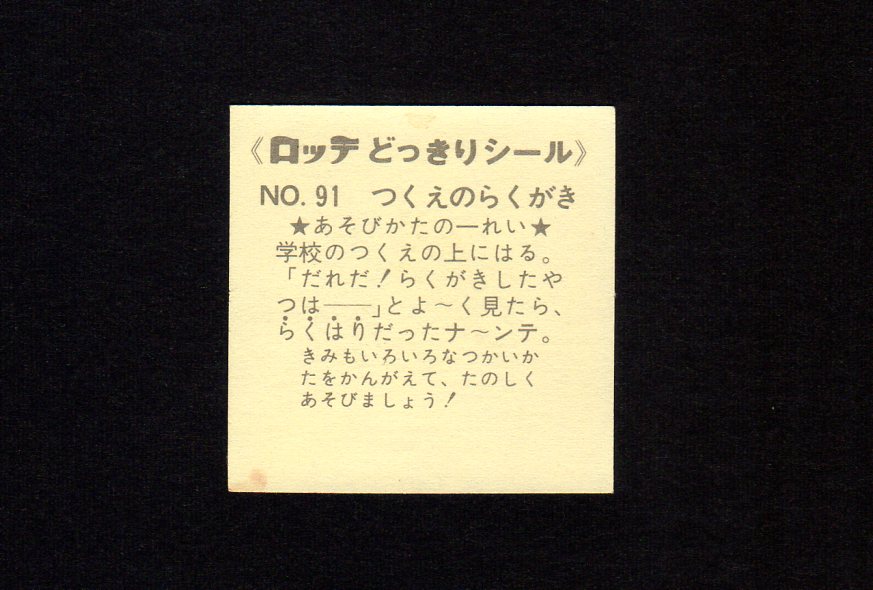 《ロッテ どっきりシール》
NO. 91　つくえのらくがき
★あそびかたの一れい★
学校のつくえの上にはる。
「だれだ！らくがきしたや
つは──」とよ〜く見たら、
らくはりだったナ〜ンテ。
きみもいろいろなつかいか
たをかんがえて、たのしく
あそびましょう！